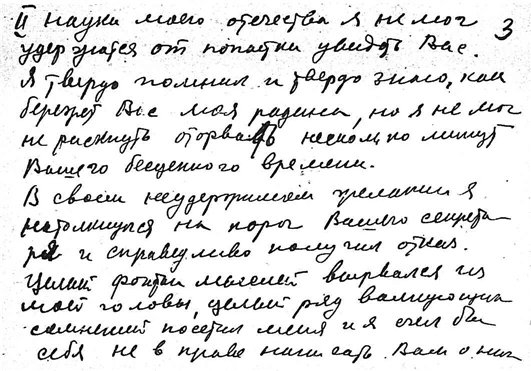 II науки моего отечества я не мог 3
удержатся от попытки увидеть Вас.
Я твердо помнил и твердо знаю, как
бережет Вас моя родина, но я не мог
не рискнуть оторвать несколько минут
Вашего бесценного времени.
В своем неудержимом желании я
натолкнулся на порог Вашего секрета-
ря и справедливо получил отказ.
Целый фонтан мыслей вырвался из
моей головы, целый ряд волнующих
сомнений посетил меня и я счел бы
себя не в праве написать Вам о них